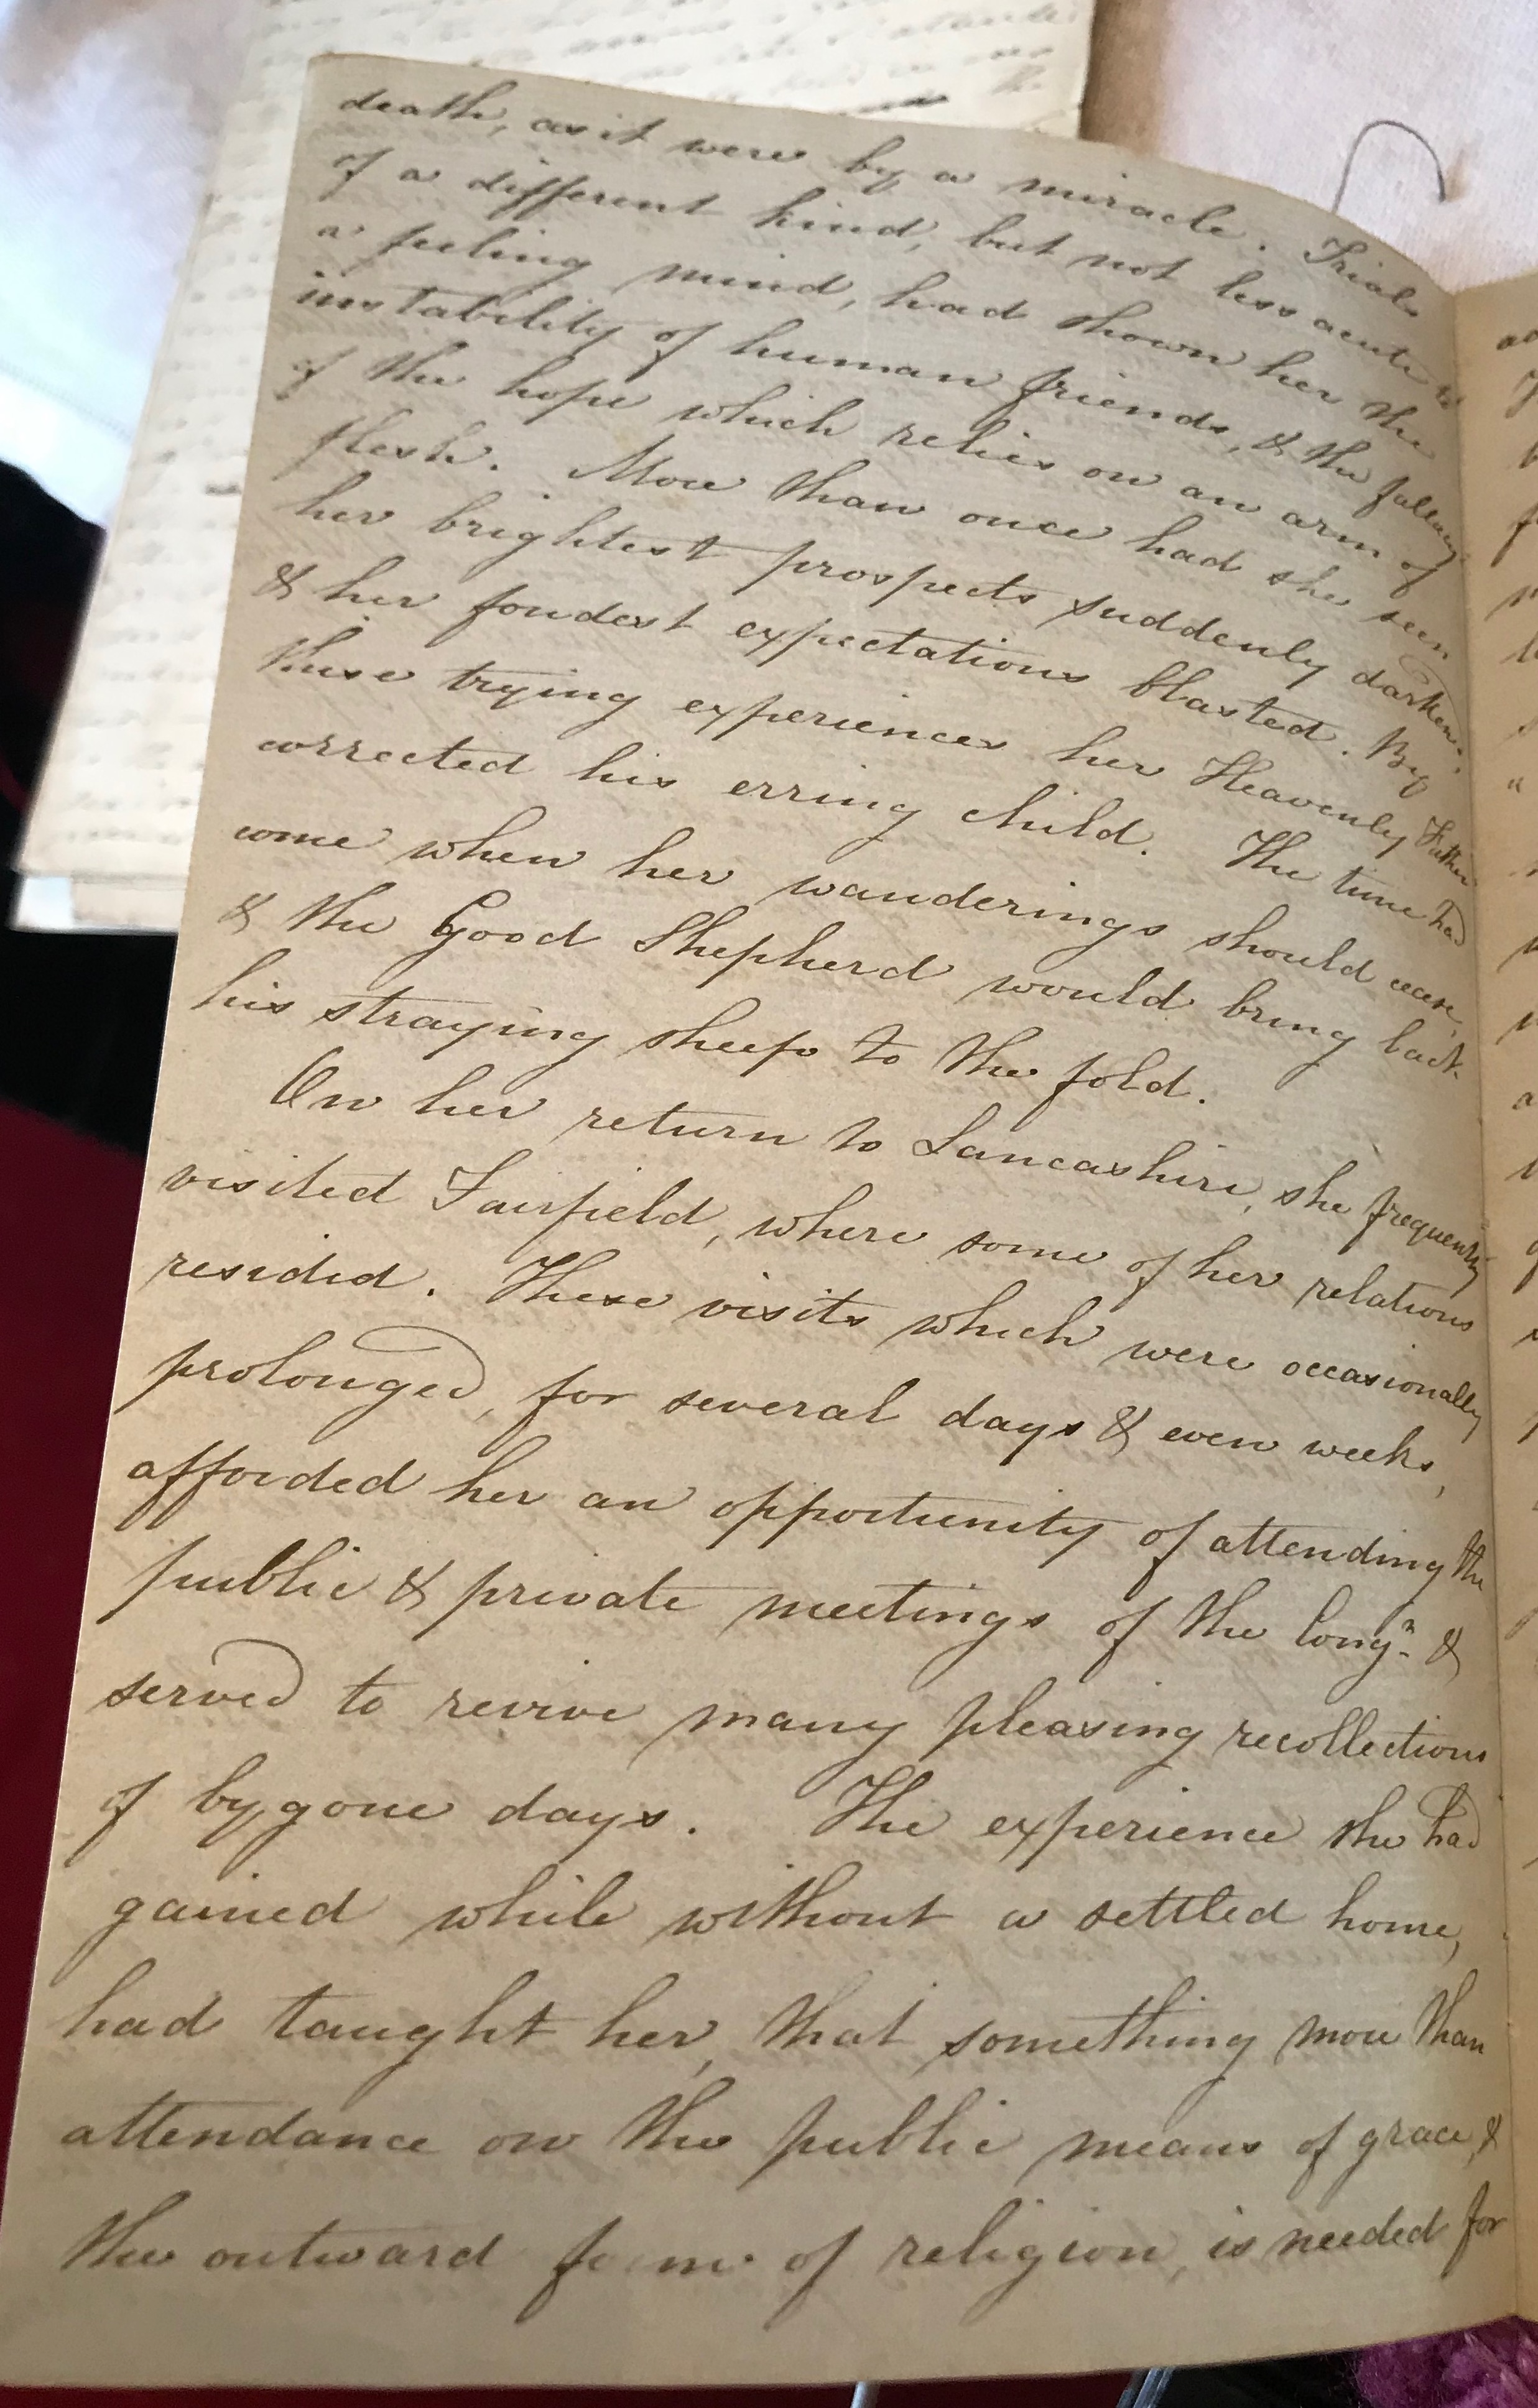 death, as it were by a miracle. Trials
of a different kind, but not less acute to
a feeling mind, had shown her the
instability of human friends, & the fallacy
of the hope which relies on an arm of
flesh. More than once had she seen
her brightest prospects suddenly darken'd
& her fondest expectations blasted. By
these trying experiences her Heavenly Father
corrected his erring child. The time had
come when her wanderings should cease,
& the Good Shepherd would bring back
his straying sheep to the fold.
On her return to Lancashire, she frequently
visited Fairfield, where some of her relations
resided. These visits which were occasionally
prolonged, for several days & even weeks,
afforded her an opportunity of attending the
public & private meetings of the Congn. &
served to revive many pleasing recollections
of bygone days. The experience she had
gained while without a settled home,
had taught her, that something more than
attendance on the public means of grace, &
the outward form of religion, is needed for